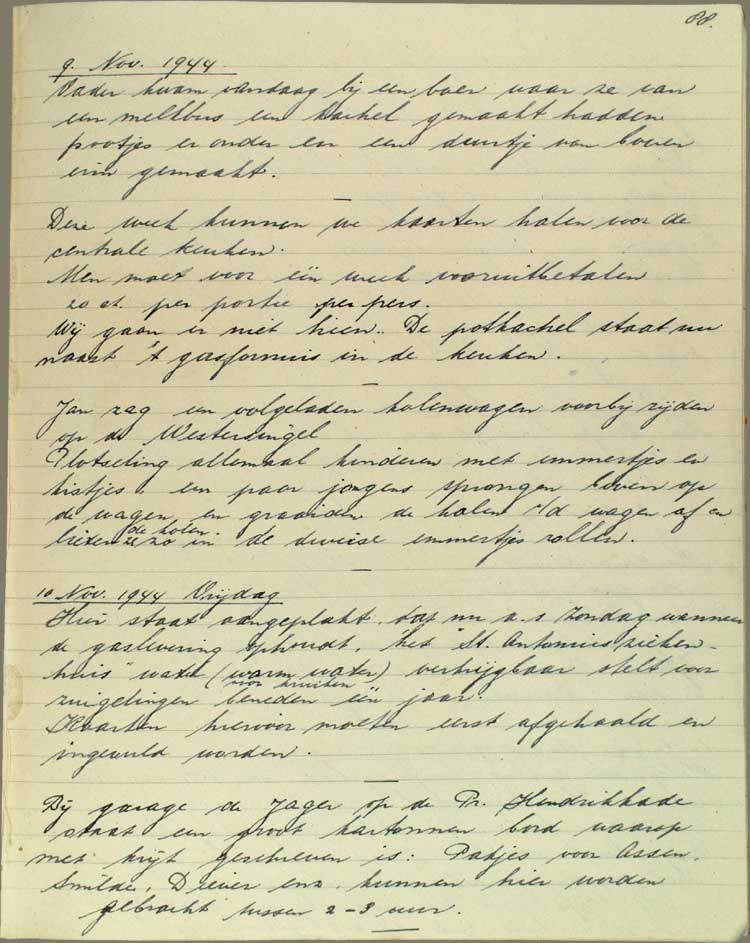 88.
9. Nov. 1944
Vader kwam vandaag bij een boer waar ze van
een melkbus een kachel gemaakt hadden
pootjes er onder en een deurtje van boven
erin gemaakt.
Deze week kunnen we kaarten halen voor de
centrale keuken.
Men moet voor één week vooruitbetalen
20 ct. per portie per pers.
Wij gaan er niet heen.. De potkachel staat nu
naast 't gasfornuis in de keuken.
Jan zag een volgeladen kolenwagen voorbij rijden
op de Westersingel
Plotseling allemaal kinderen met emmertjes en
kistjes, een paar jongens sprongen boven op
de wagen en graaiden de kolen v/d wagen af en
de kolen
lieten ze zo in de diverse emmertjes rollen.
10 Nov. 1944 Vrijdag
Hier staat aangeplakt dat nu a.s. Zondag wanneer
de gaslevering ophoudt, het "St. Antonius zieken-
huis" water (warm water) verkrijgbaar stelt voor
voor kruiken
zuigelingen beneden één jaar.
Kaarten hiervoor moeten eerst afgehaald en
ingevuld worden.
Bij garage de Jager op de Pr. Hendrikkade
staat een groot kartonnen bord waarop
met krijt geschreven is: Pakjes voor Assen,
Smilde, Diever enz. kunnen hier worden
gebracht tussen 2-3 uur.